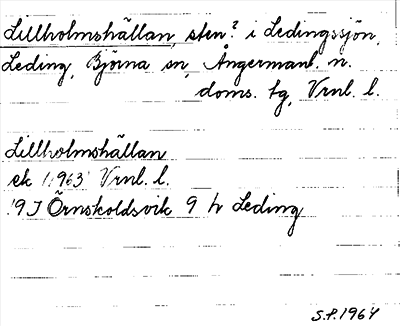 Lillholmshällan, sten? i Ledingssjön,
Leding, Björna sn, Ångermanl. n.
doms. tg, Vrnl. l.
Lillholmshällan
ek 1963 Vrnl. l.
19J Örnsköldsvik 9 h Leding
S.P. 1964